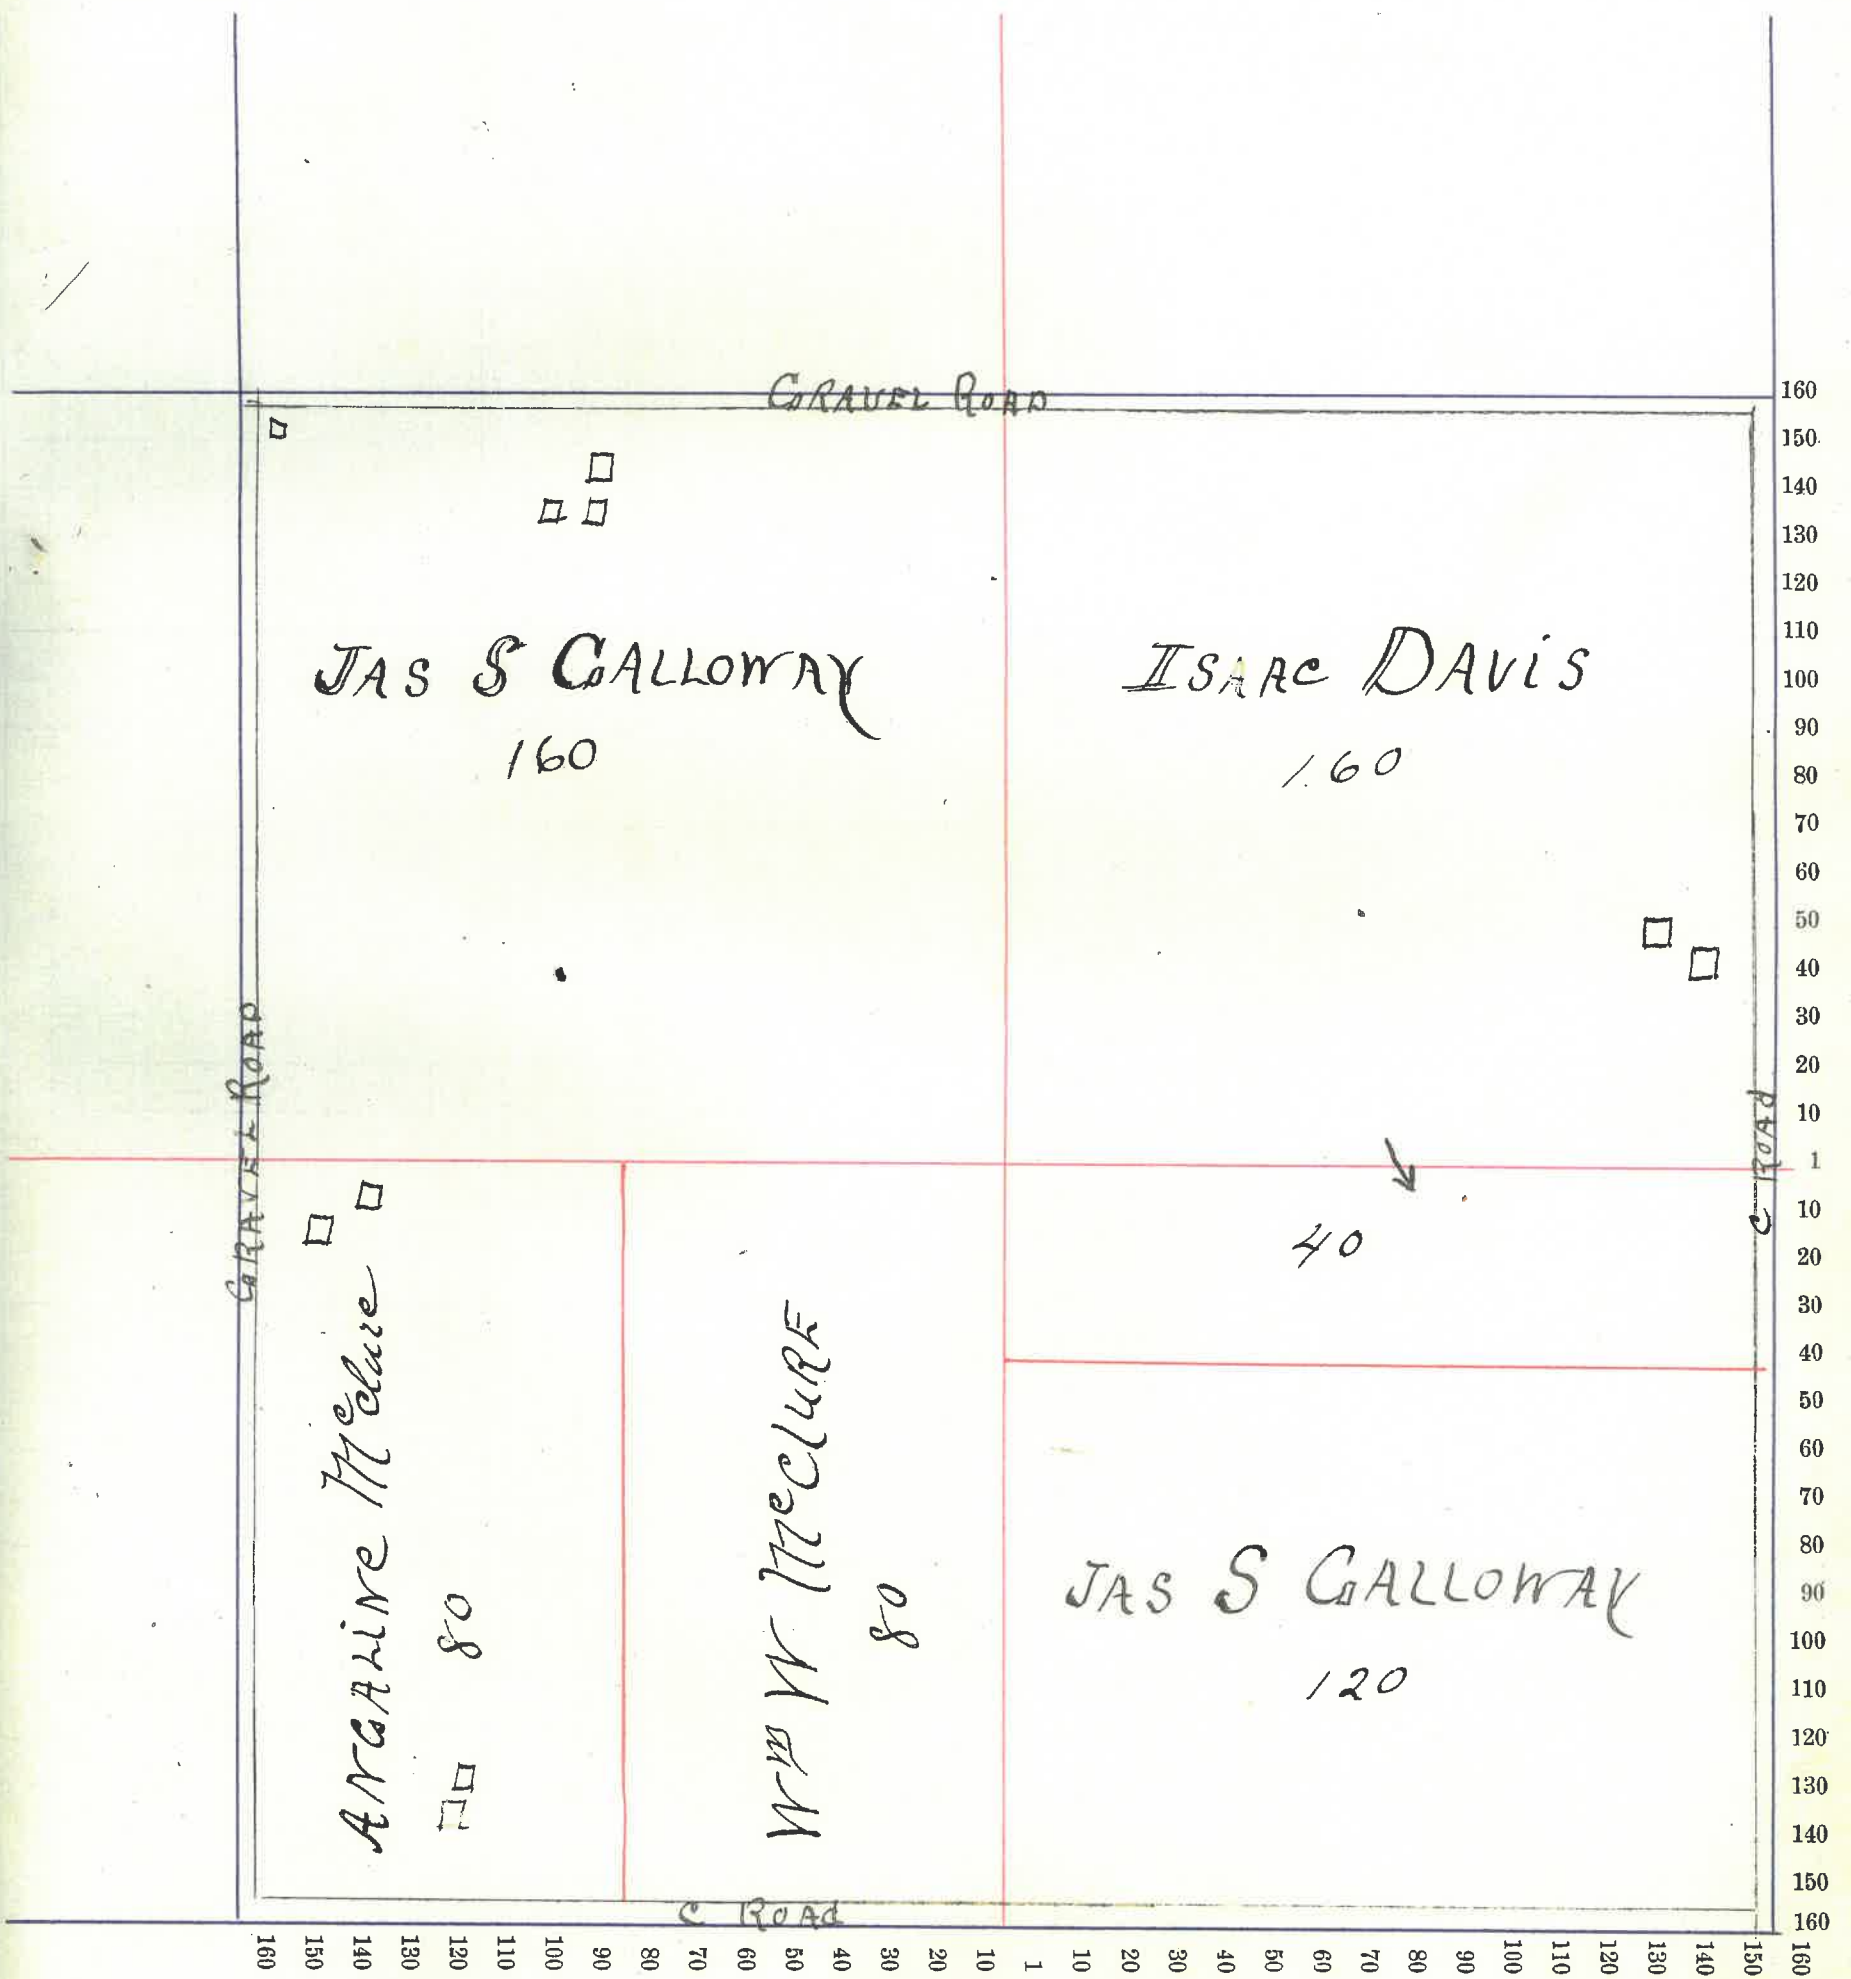 GRAVEL ROAD
JAS S GALLOWAY
160
ISAAC DAVIS
160
GRAVEL ROAD
C ROAD
ANGALINE McClure
80
Wm W McCLURE
80
40
JAS S GALLOWAY
120
C ROAd
160
150
140
130
120
110
100
90
80
70
60
50
40
30
20
10
1
10
20
30
40
50
60
70
80
90
100
110
120
130
140
150
160
160 150 140 130 120 110 100 90 80 70 60 50 40 30 20 10 1 10 20 30 40 50 60 70 80 90 100 110 120 130 140 150 160